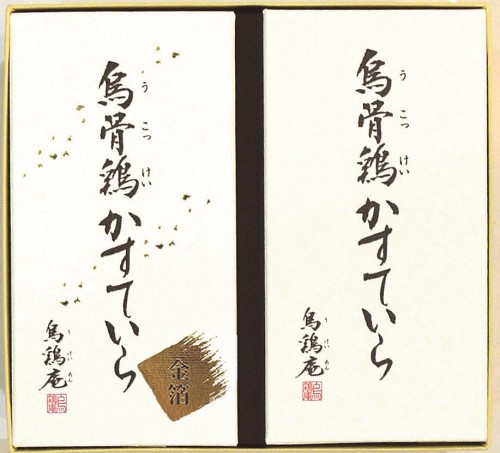 烏骨鶏かすていら
う こっ けい
烏鶏庵
う けい あん
金箔
烏骨鶏かすていら
う こっ けい
烏鶏庵
う けい あん